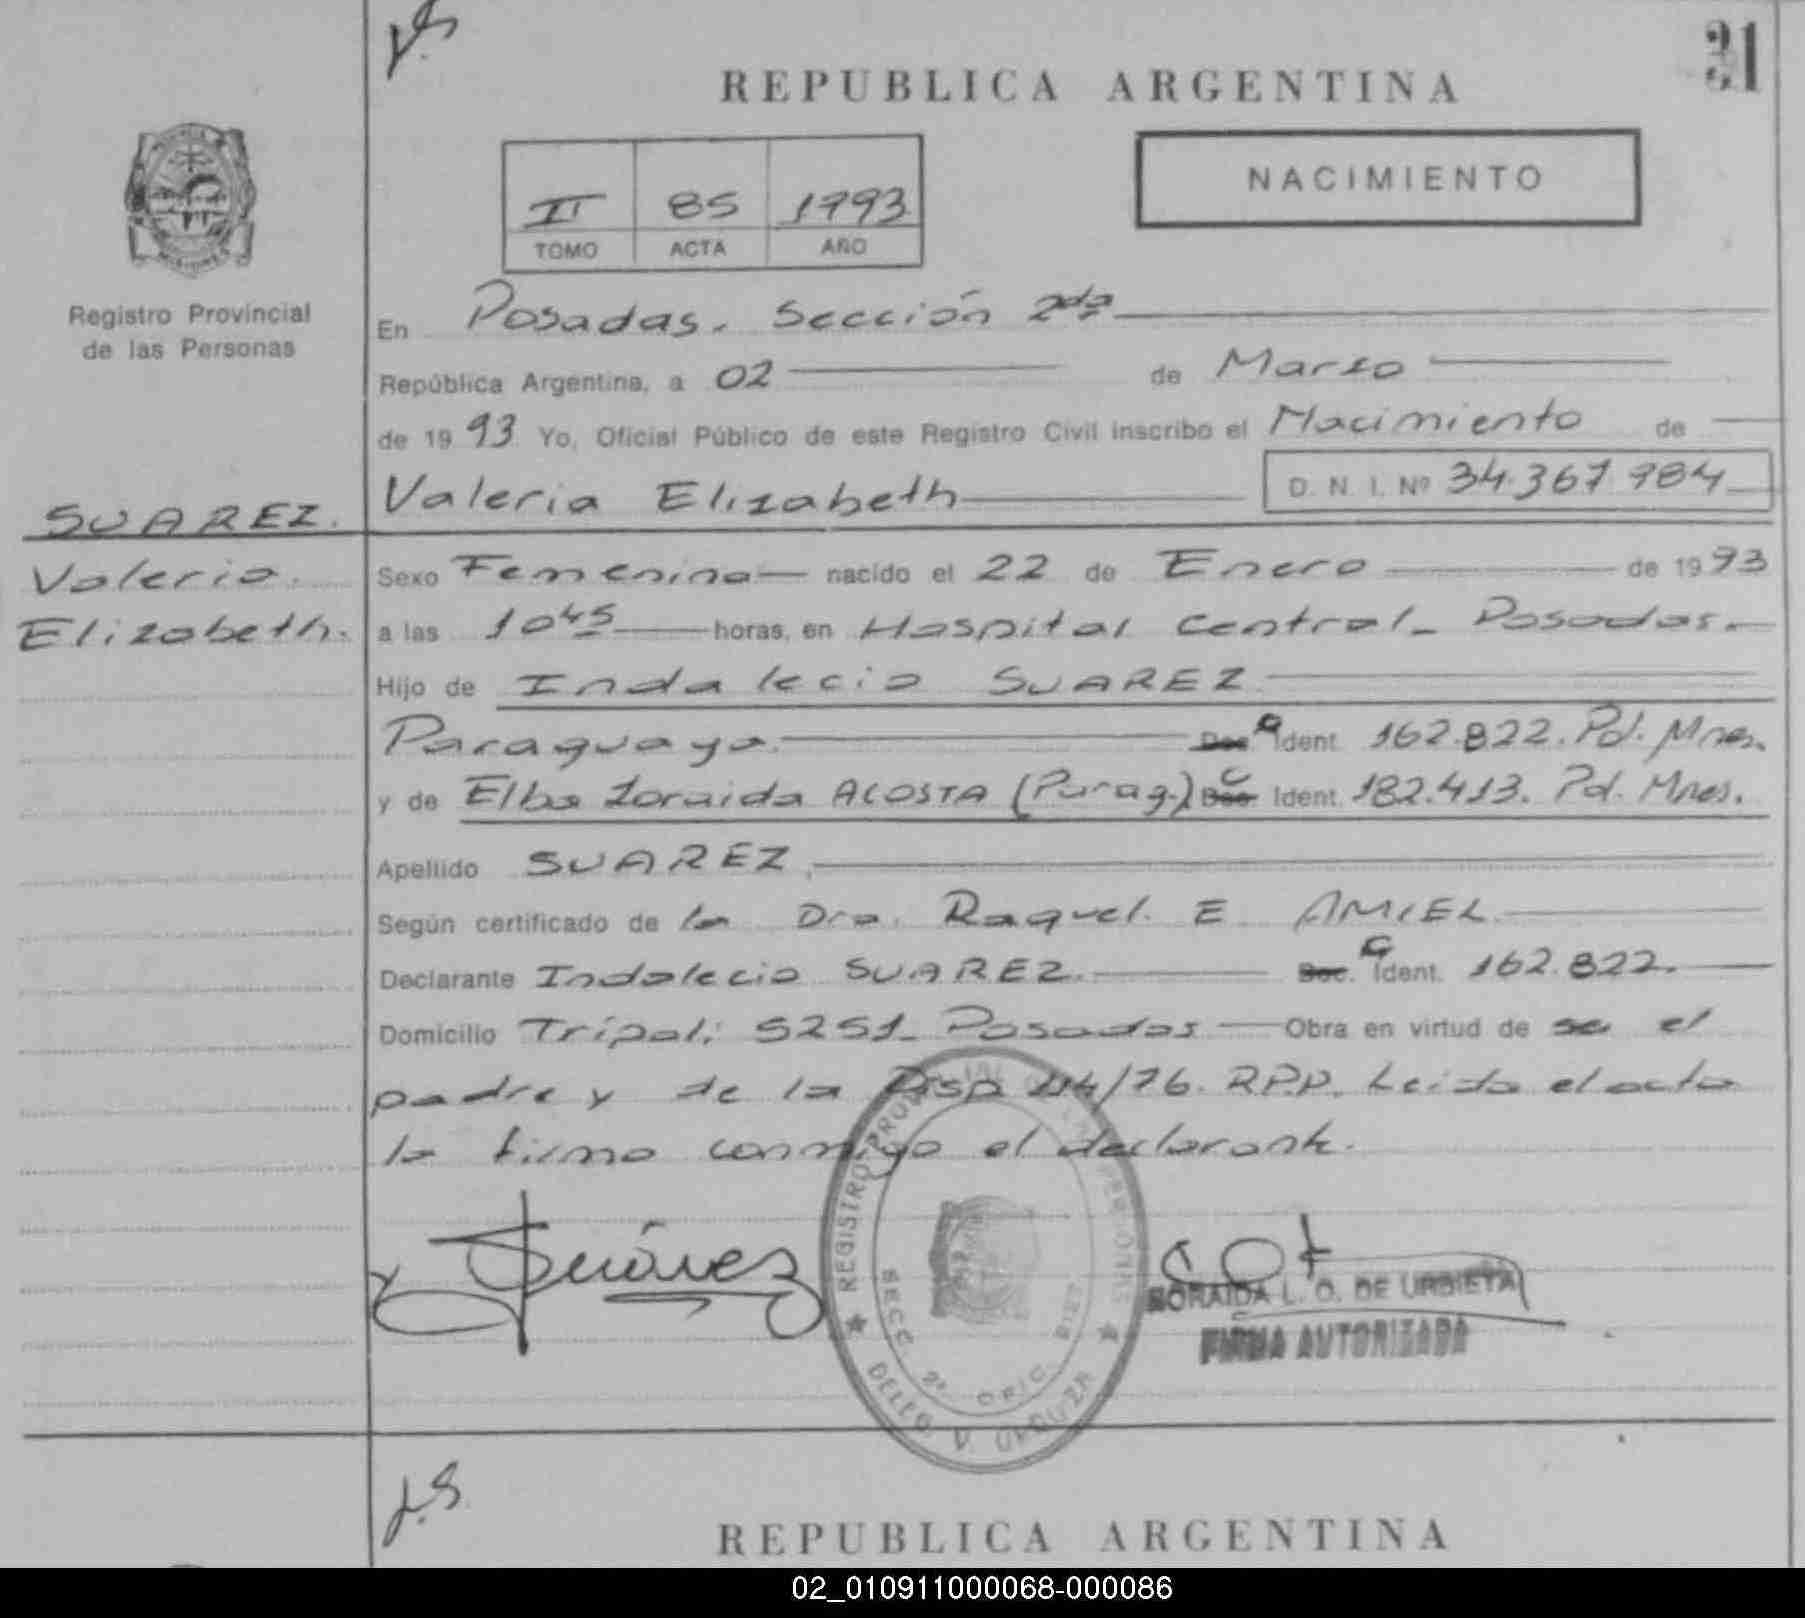 31
REPUBLICA ARGENTINA
II 85 1993
TOMO ACTA AÑO
NACIMIENTO
Registro Provincial
de las Personas
SUAREZ.
Valeria
Elizabeth.
En Posadas. Sección 2da
República Argentina, a 02 de Marzo
de 1993 Yo, Oficial Público de este Registro Civil inscribo el Nacimiento de
Valeria Elizabeth D. N. I. Nº 34.367.984
Sexo Femenino nacido el 22 de Enero de 1993
a las 10 45 horas, en Hospital Central - Posadas.
Hijo de Indalecio SUAREZ
Paraguayo. C Ident. 162.822. Pd. Mnes.
y de Elba Zoraida ACOSTA (Parag.) C Ident. 182.413. Pd. Mnes.
Apellido SUAREZ
Según certificado de la Dra. Raquel E AMIEL
Declarante Indalecio SUAREZ. C Ident. 162.822.
Domicilio Tripoli 5251 - Posadas Obra en virtud de ser el
padre y de la Disp /76. R.P.P. Leida el acta
la firma conmigo el declarante.
Suárez
REGISTRO PROVINCIAL DE LAS PERSONAS
SECC 2ª OFIC.
DELEG. V. URQUIZA
SORAIDA L. O. DE URBIETA
FIRMA AUTORIZADA
REPUBLICA ARGENTINA
02_010911000068-000086